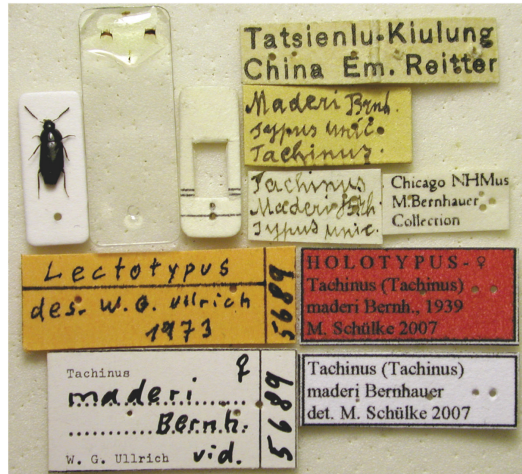 Tatsienlu-Kiulung
China Em. Reitter
Maderi Brnh.
Typus unic.
Tachinus.
Tachinus
Maderi Brh.
Typus unic.
Chicago NHMus
M.Bernhauer
Collection
Lectotypus
des. W. G. Ullrich
1973
5689
HOLOTYPUS-♀
Tachinus (Tachinus)
maderi Bernh., 1939
M. Schülke 2007
Tachinus ♀
maderi
Bernh.
W. G. Ullrich vid.
5689
Tachinus (Tachinus)
maderi Bernhauer
det. M. Schülke 2007